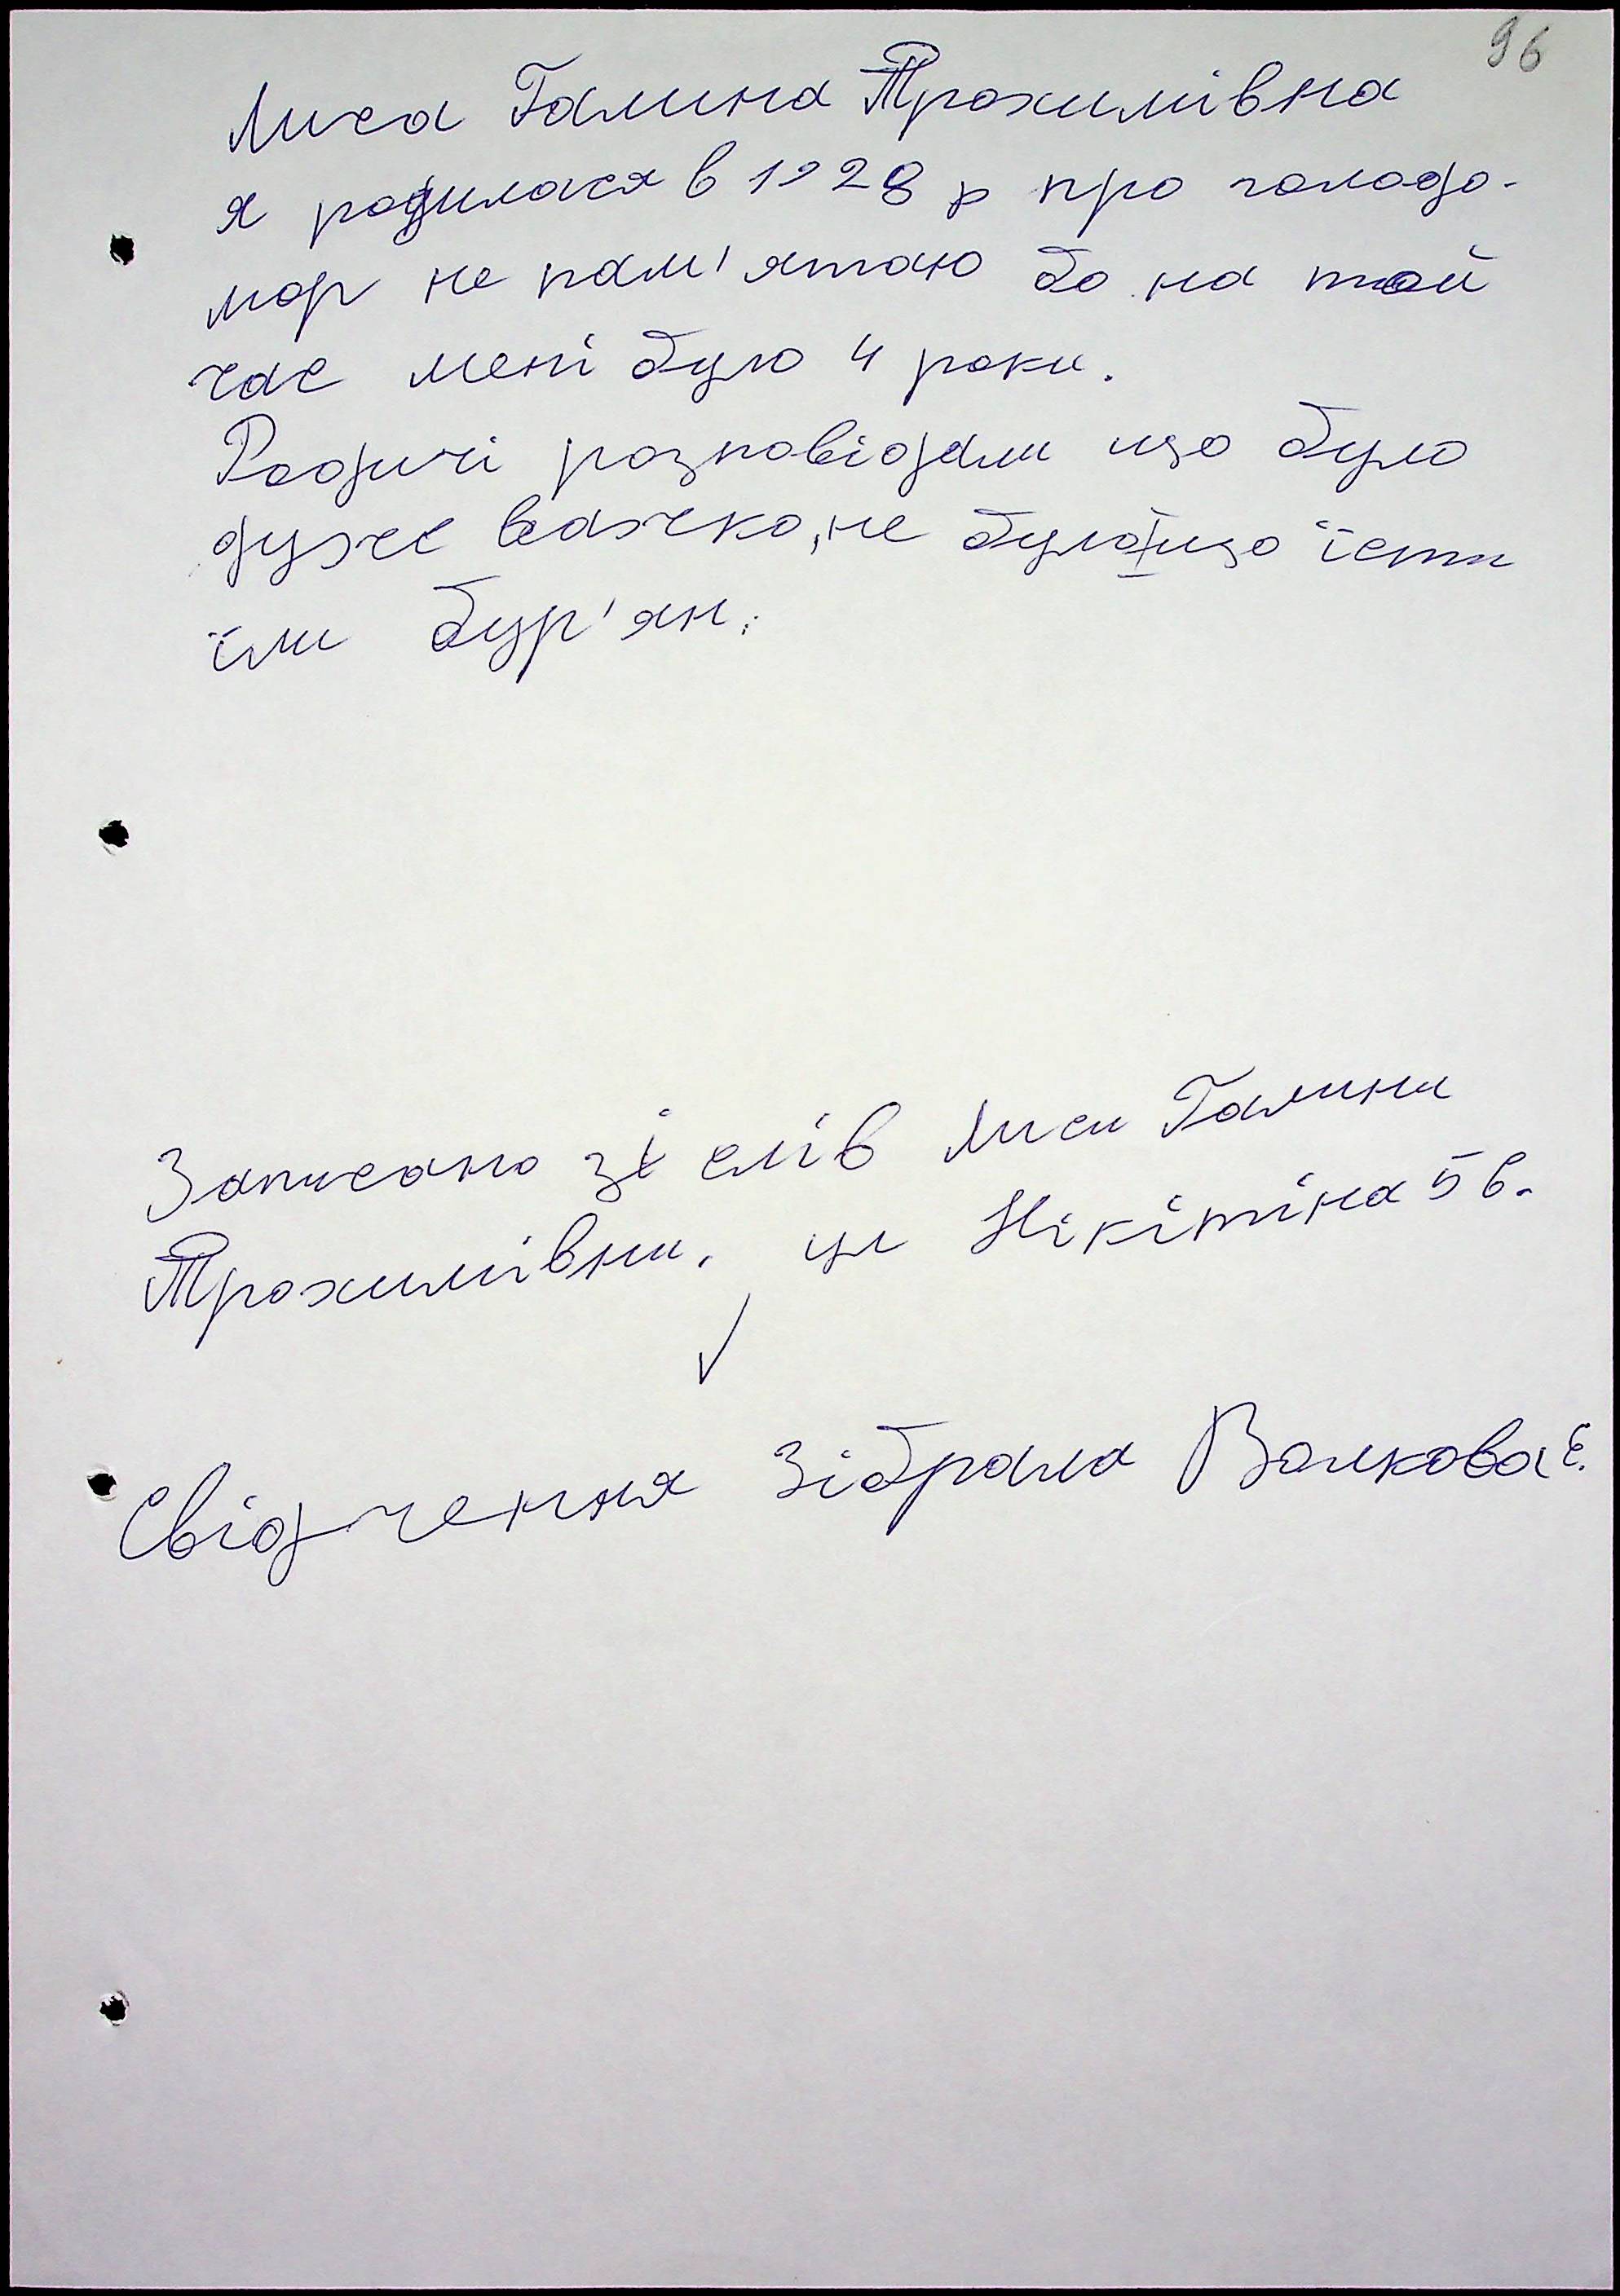 96
Лиса Галина Трохимівна
я родилася в 1928 р про голодо-
мор не пам'ятаю бо на той
час мені було 4 роки.
Родичі розповідали що було
дуже важко, не було що їсти
їли бур'ян.
Записано зі слів Лиси Галини
Трохимівни. ул Нікітіна 5 в.
Свідчення зібрала Волкова Є.